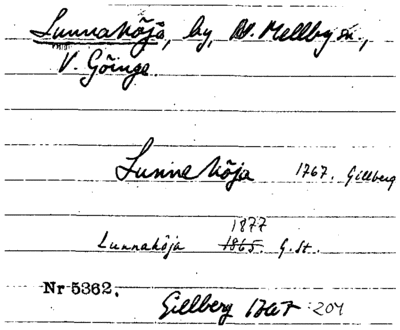 Lunnahöja, by, N. Mellby sn.,
V. Göinge.
Lunnahöja 1767. Gillberg
1877
Lunnahöja 1865. G. St.
Nr 5362.
Gillberg 1767: 204